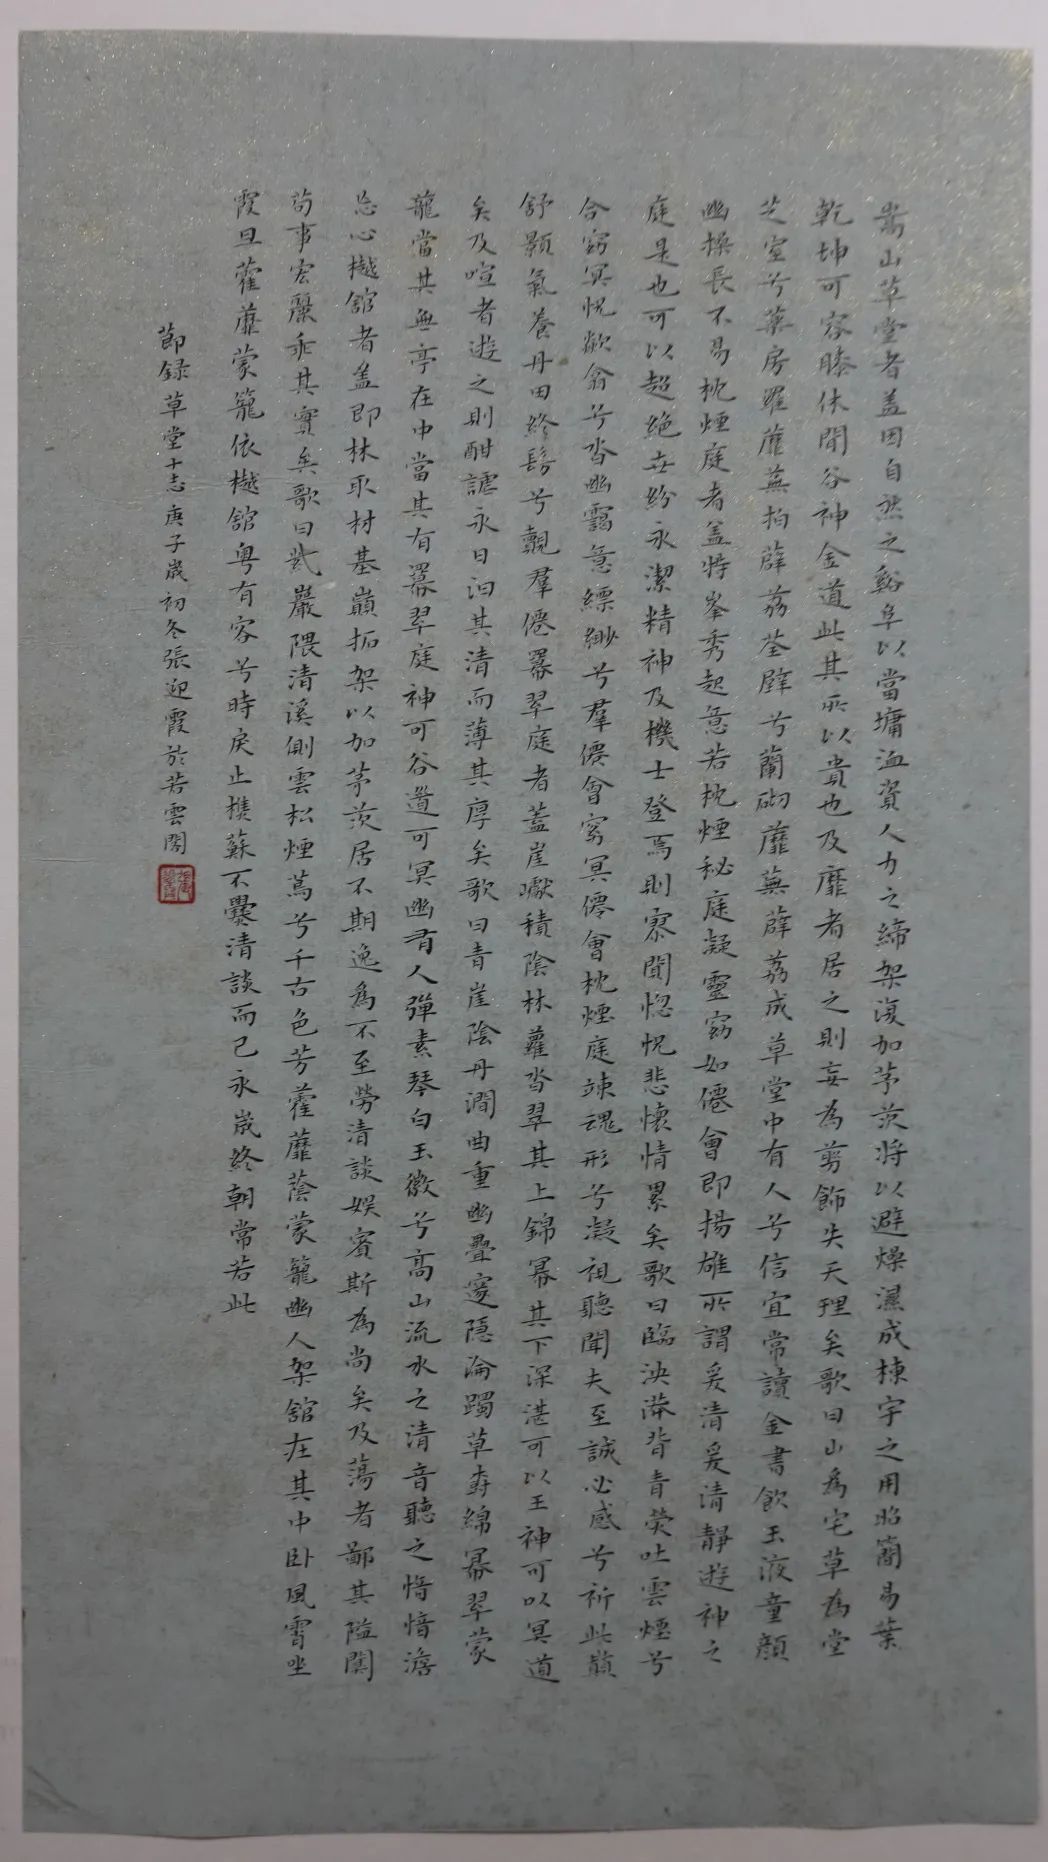 嵩山草堂者盖因自然之谿阜以當墉洫資人力之締架復加茅茨將以避燥濕成棟宇之用昭簡易葉
乾坤可容膝休閒谷神全道此其所以貴也及靡者居之則妄為剪飾失天理矣歌曰山爲宅草為堂
芝室兮葯房羅蘼蕪拍薜荔荃壁兮蘭砌蘼蕪薜荔成草堂中有人兮信宜常讀金書飲玉液童顏
幽操長不易枕煙庭者盖特峯秀起意若枕煙秘庭凝靈窈如僊會即揚雄所謂爰清爰清靜遊神之
庭是也可以超絶世紛永潔精神及機士登焉則寥闃惚怳悲懷情累矣歌曰臨泱漭背青熒吐雲煙兮
合窈冥怳歘翕兮沓幽靄意縹緲兮羣僊會窈冥僊會枕煙庭竦魂形兮凝視聽聞夫至誠必感兮祈此巔
舒顥氣養丹田終髣兮覯羣僊羃翠庭者蓋崖巘積陰林蘿沓翠其上錦冪其下深湛可以王神可以冥道
矣及喧者遊之則酣謔永日汩其清而薄其厚矣歌曰青崖陰丹澗曲重幽疊邃隱淪躅草樹綿冪翠蒙
蘢當其無亭在中當其有羃翠庭神可谷道可冥幽有人彈素琴白玉徽兮高山流水之清音聽之愔愔澹
忘心樾舘者盖即林取材基巔拓架以加茅茨居不期逸爲不至勞清談娛賓斯為尚矣及蕩者鄙其隘闃
苟事宏麗乖其實矣歌曰紫巖隈清溪側雲松煙蔦兮千古色芳藿蘼蔭蒙籠幽人架舘在其中卧風霄坐
霞旦藿蘼蒙籠依樾舘粤有容兮時戾止樵蘇不爨清談而已永歲終朝常若此
節錄草堂十志庚子歲初冬張迎霞於若雲閣